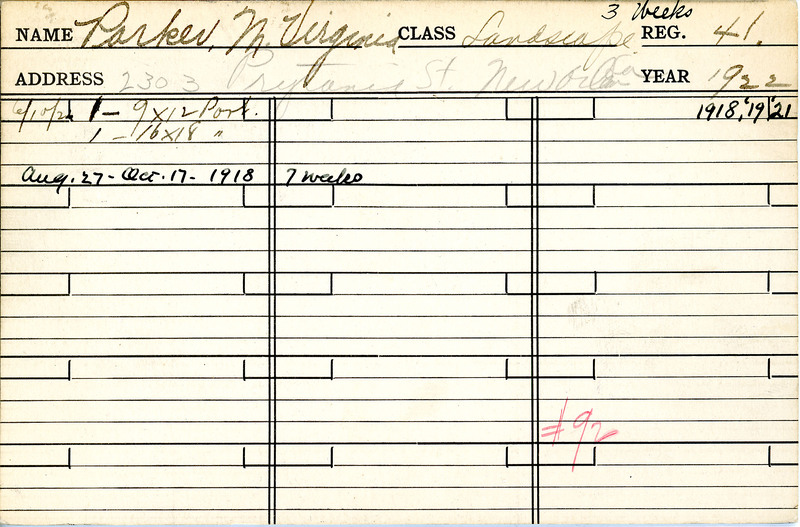 3 Weeks
NAME Parker, M. Virginia CLASS Landscape REG. 41.
ADDRESS 2303 Prytania St. New Orleans YEAR 1922
6/10/22 1 - 9x12 Port. 1918, '19, '21
1 - 16x18 "
Aug. 27 - Oct. 17 - 1918 7 weeks
#92